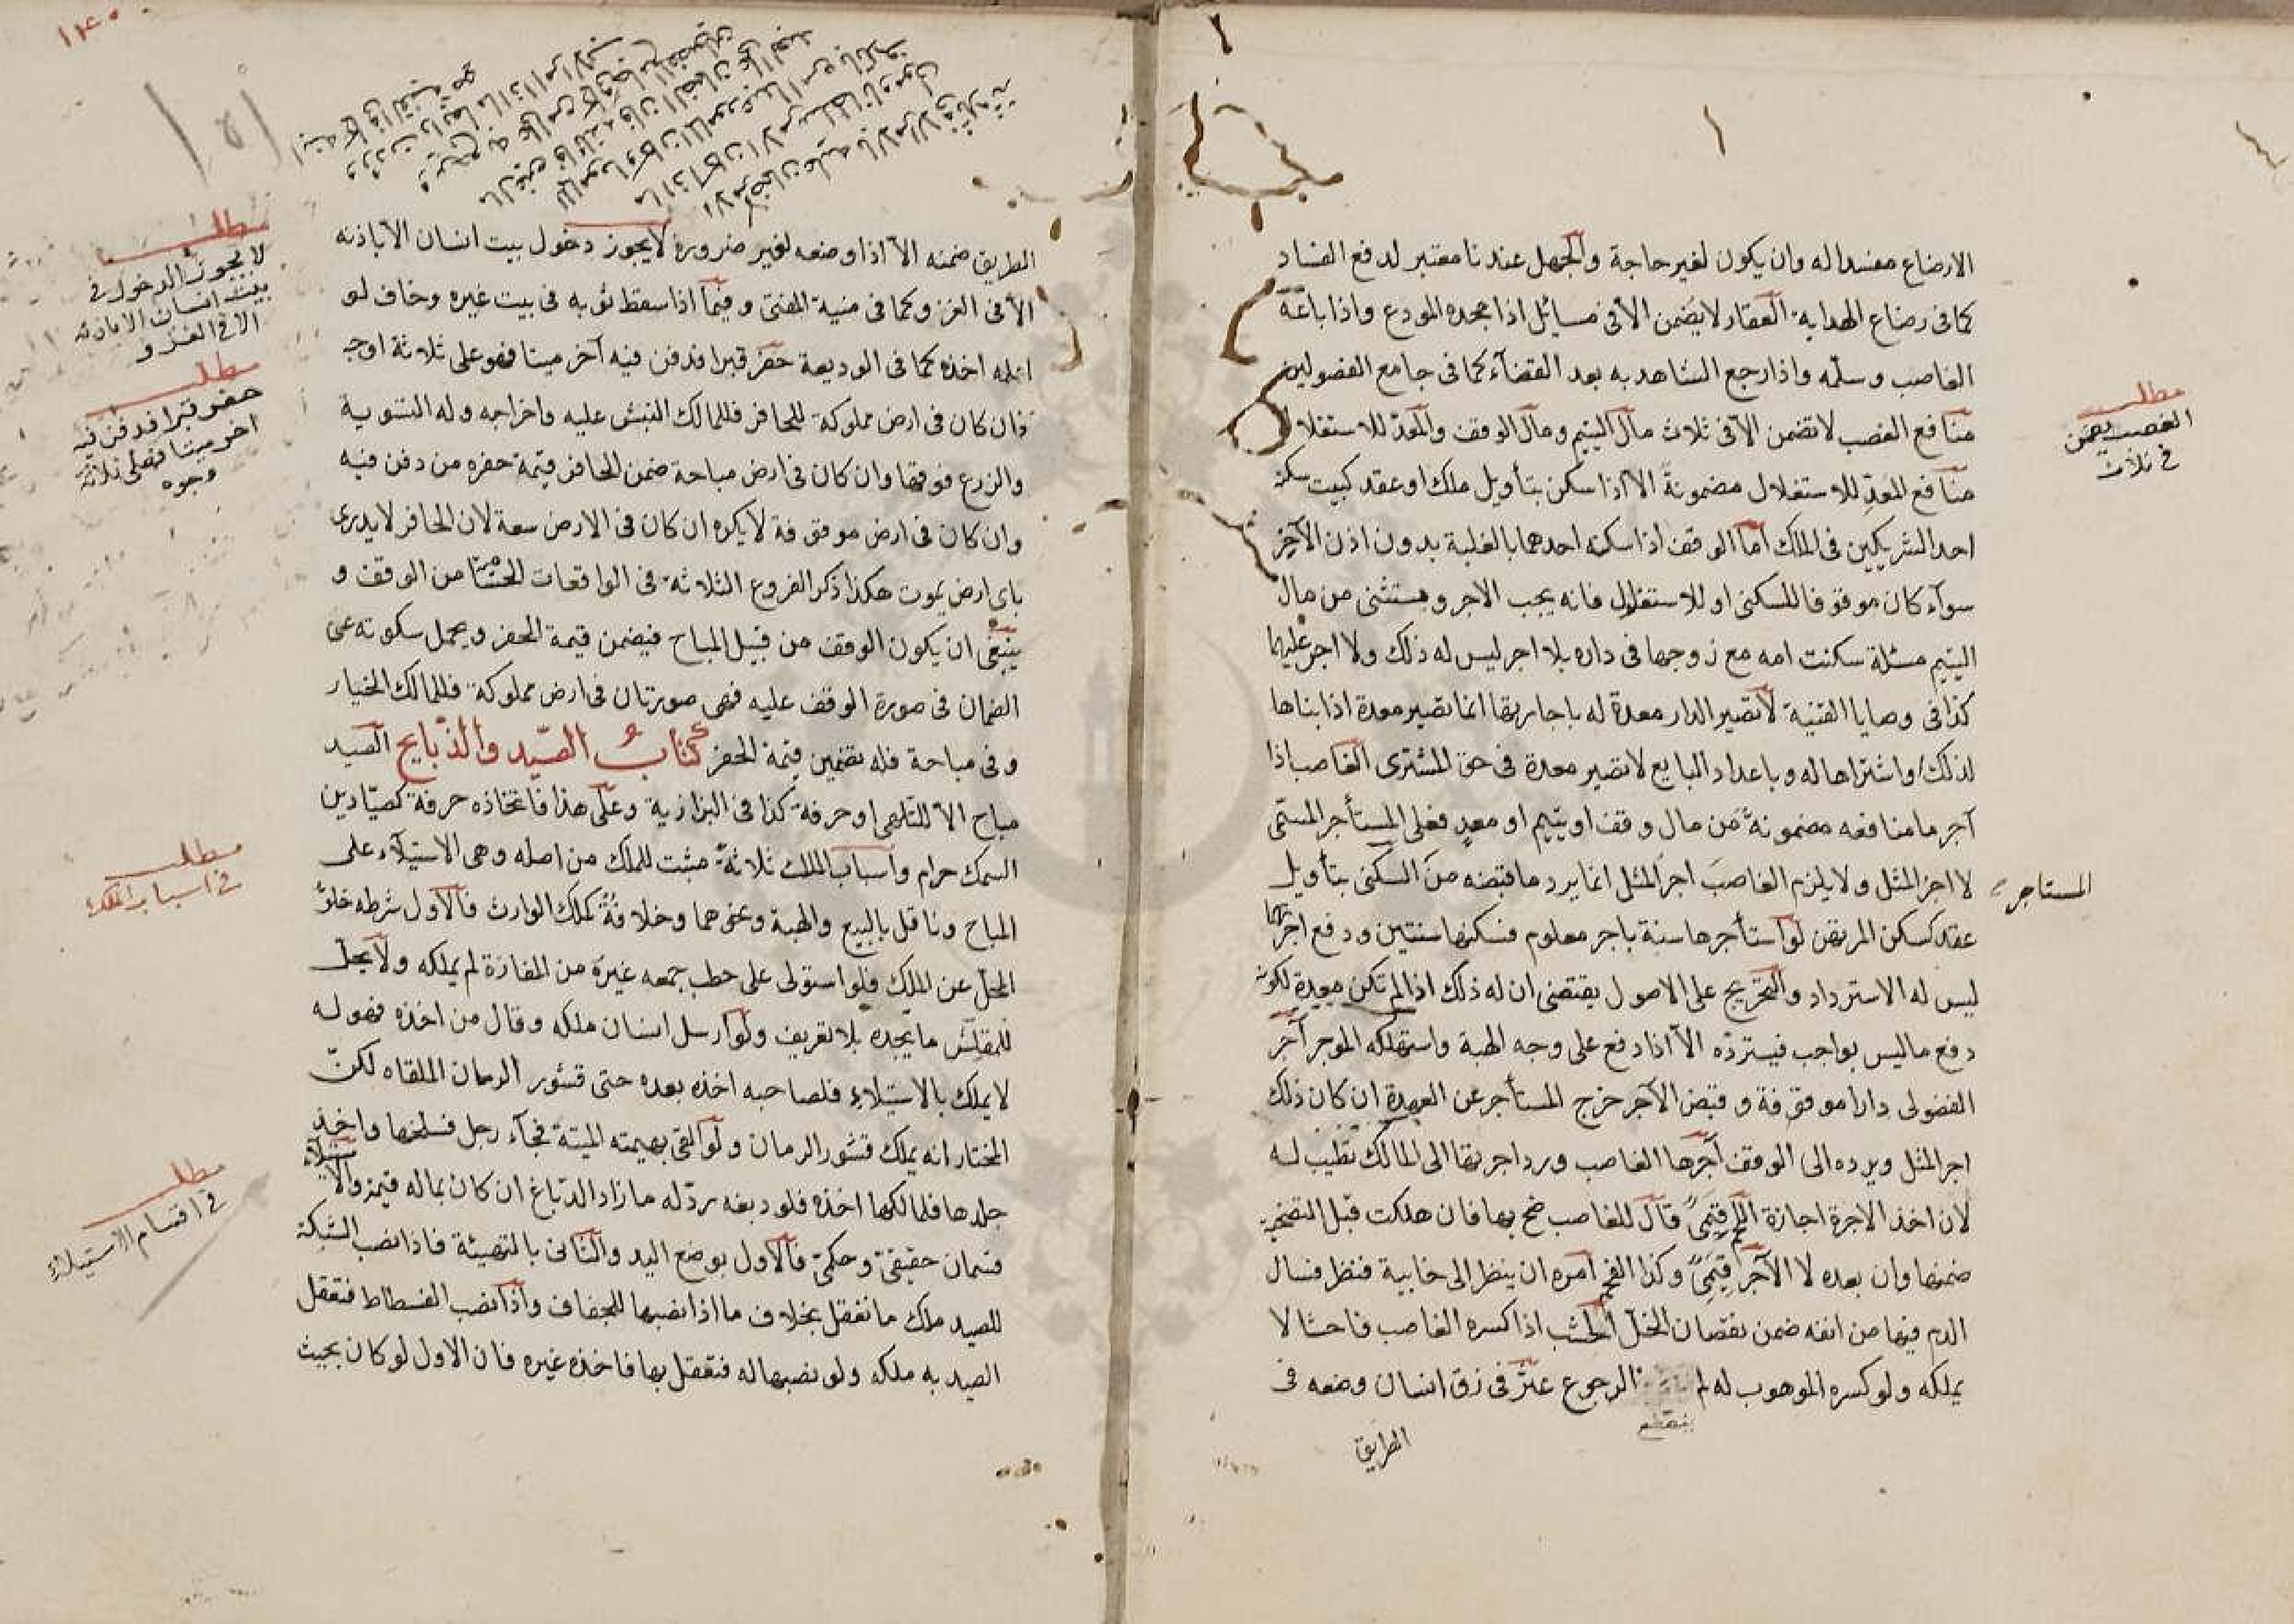 الارضاع مفسدا له وان يكون لغير حاجة والجهل عندنا معتبر لدفع الفساد
كما في رضاع الهداية العقار لا يضمن الا في مسائل اذا جحده المودع واذا باعه
الغاصب وسلمه واذا رجع الشاهد به بعد القضاء كما في جامع الفصولين
منافع الغصب لا تضمن الا في ثلاث مال اليتيم ومال الوقف والمعد للاستغلال
منافع المعد للاستغلال مضمونة الا اذا سكن بتأويل ملك او عقد كبيت سكنه
احد الشريكين في الملك اما الوقف اذا سكنه احدهما بالغلبة بدون اذن الآخر
سواء كان موقوفا للسكنى او للاستغلال فانه يجب الاجر ويستثنى من مال
اليتيم مسئلة سكنت امه مع زوجها في داره بلا اجر ليس له ذلك ولا اجر عليهما
كذا في وصايا القنية لا تصير الدار معدة له باجارتها انما تصير معدة اذا بناها
لذلك او اشتراها له وباعداد البايع لا تصير معدة في حق المشترى الغاصب اذا
آجر ما منافعه مضمونة من مال وقف او يتيم او معد فعلى المستأجر المسمى
لا اجر المثل ولا يلزم الغاصب اجر المثل انما يرد ما قبضه من السكنى بتأويل
عقد كسكن المرتهن لو استأجرها سنة باجر معلوم فسكنها سنتين ودفع اجرتهما
ليس له الاسترداد والتخريج على الاصول يقتضى ان له ذلك اذا لم تكن معدة لكونه
دفع ما ليس بواجب فيسترده الا اذا دفع على وجه الهبة واستهلكه الموجر آجر
الفضولى دارا موقوفة وقبض الآجر خرج المستأجر عن العهدة ان كان ذلك
اجر المثل ويرده الى الوقف آجرها الغاصب ورد اجرتها الى المالك تطيب له
لان اخذ الاجرة اجازة اللحم قيمى قال للغاصب ضح بها فان هلكت قبل التضحية
ضمنها وان بعده لا الآجر قيمى وكذا الفحم امره ان ينظر الى خابية فنظر فسال
الدم فيها من انفه ضمن نقصان الخل الخشب اذا كسره الغاصب فاحشا لا
يملكه ولو كسره الموهوب له لم ينقطع الرجوع عثر في زق انسان وضعه في
الطريق
مطلب
الغصب يضمن
في ثلاث
المستاجر
١٤٠
الطريق ضمنه الا اذا وضعه لغير ضرورة لا يجوز دخول بيت انسان الا باذنه
الا في الغزو كما في منية المفتى وفيما اذا سقط ثوبه في بيت غيره وخاف لو
اعلمه اخذه كما في الوديعة حفر قبرا فدفن فيه آخر ميتا فهو على ثلاثة اوجه
فان كان في ارض مملوكة للحافر فللمالك النبش عليه واخراجه وله التسوية
والزرع فوقها وان كان في ارض مباحة ضمن الحافر قيمة حفره من دفن فيه
وان كان في ارض موقوفة لا يكره ان كان في الارض سعة لان الحافر لا يدرى
باى ارض يموت هكذا ذكر الفروع الثلاثة في الواقعات الحسامية من الوقف و
ينبغى ان يكون الوقف من قبيل المباح فيضمن قيمة الحفر ويحمل سكوته عن
الضمان في صورة الوقف عليه فهى صورتان في ارض مملوكة فللمالك الخيار
وفي مباحة فله تضمين قيمة الحفر كتاب الصيد والذبايح الصيد
مباح الا للتلهى او حرفة كذا في البزازية وعلى هذا فاتخاذه حرفة كصيادين
السمك حرام واسباب الملك ثلاثة مثبت للملك من اصله وهى الاستيلاء على
المباح وناقل بالبيع والهبة ونحوهما وخلافة كملك الوارث فالاول شرطه خلو
المحل عن الملك فلو استولى على حطب جمعه غيره من المفازة لم يملكه ولا يحل
للمقلش ما يجده بلا تعريف ولو ارسل انسان ملكه وقال من اخذه فهو له
لا يملك بالاستيلاء فلصاحبه اخذه بعده حتى قشور الرمان الملقاه لكن
المختار انه يملك قشور الرمان ولو القى بهيمته الميتة فجاء رجل فسلخها واخذ
جلدها فلمالكها اخذه فلو دبغه رد له ما زاد الدباغ ان كان بماله قيمة والاستيلاء
قسمان حقيقى وحكمى فالاول بوضع اليد والثانى بالتهيئة فاذا نصب الشبكة
للصيد ملك ما تعقل بخلاف ما اذا نصبها للجفاف واذا نصب الفسطاط فتعقل
الصيد به ملكه ولو نصبها له فتعقل بها فاخذه غيره فان الاول لو كان بحيث
مطلب
لا يجوز الدخول في
بيت انسان الا باذنه
الا في الغزو
مطلب
حفر قبرا فدفن فيه
اخر ميتا فعلى ثلاثة
وجوه
مطلب
في اسباب الملك
مطلب
في اقسام الاستيلاء